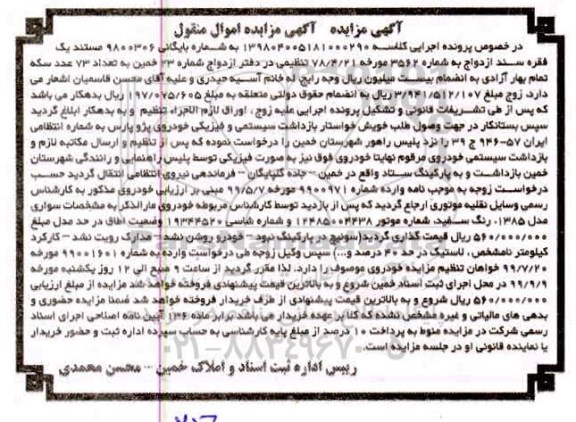 آگهی مزایده    آگهی مزایده اموال منقول
در خصوص پرونده اجرایی کلاسه ۱۳۹۸۰۴۰۰۵۱۸۱۰۰۰۲۹۰ به شماره بایگانی ۹۸۰۰۳۰۶ مستند یک
فقره سند ازدواج به شماره ۳۵۶۲ مورخه ۷۸/۴/۲۱ تنظیمی در دفتر ازدواج شماره ۲۳ خمین به تعداد ۷۳ عدد سکه
تمام بهار آزادی به انضمام بیست میلیون ریال وجه رایج له خانم آسیه حیدری و علیه آقای محسن قاسمیان اشعار می
دارد، زوج مبلغ ۳/۹۴۱/۵۱۲/۱۰۷ ریال به انضمام حقوق دولتی متعلقه به مبلغ ۱۹۷/۰۷۵/۶۰۵ ریال بدهکار می باشد
که پس از طی تشریفات قانونی و تشکیل پرونده اجرایی علیه زوج، اوراق لازم الاجراء تنظیم و به بدهکار ابلاغ گردید
سپس بستانکار در جهت وصول طلب خویش خواستار بازداشت سیستمی و فیزیکی خودروی پژو پارس به شماره انتظامی
ایران ۵۷-۹۴۶ ج ۳۹ از نزد پلیس راهور شهرستان خمین را درخواست نموده که پس از تنظیم و ارسال مکاتبه لازم و
بازداشت سیستمی خودروی مرقوم نهایتا خودروی فوق نیز به صورت فیزیکی توسط پلیس راهنمایی و رانندگی شهرستان
خمین بازداشت و به پارکینگ ستاد واقع در خمین - جاده گلپایگان - فرماندهی نیروی انتظامی انتقال گردید حسب
درخواست زوجه به موجب نامه وارده شماره ۹۹۰۰۹۷۱ مورخه ۹۹/۵/۷ مبنی بر ارزیابی خودروی مذکور به کارشناس
رسمی وسایل نقلیه موتوری ارجاع گردید که پس از بازدید توسط کارشناس مربوطه خودروی مارالذکر به مشخصات سواری
مدل ۱۳۸۵، رنگ سفید، شماره موتور ۱۲۴۸۵۰۰۴۴۳۸ و شماره شاسی ۱۹۳۴۴۵۲۰ وضعیت اطاق در حد مدل مبلغ
۵۶۰/۰۰۰/۰۰۰ ریال قیمت گذاری گردید(سوئیچ در پارکینگ نبود - خودرو روشن نشد - مدارک رویت نشد - کارکرد
کیلومتر نامشخص، لاستیک در حد ۴۰ درصد و...) سپس وکیل زوجه طی درخواست وارده به شماره ۹۹۰۰۱۶۰۱ مورخه
۹۹/۷/۲۰ خواهان تنظیم مزایده خودروی موصوف را دارد، لذا مقرر گردید از ساعت ۹ صبح الی ۱۲ روز یکشنبه مورخه
۹۹/۹/۹ در محل اجرای ثبت اسناد خمین شروع و به بالاترین قیمت پیشنهادی فروخته خواهد شد مزایده از مبلغ ارزیابی
۵۶۰/۰۰۰/۰۰۰ ریال شروع و به بالاترین قیمت پیشنهادی از طرف خریدار فروخته خواهد شد ضمنا مزایده حضوری و
بدهی های مالیاتی و غیره مشخص نشده که کلا بر عهده خریدار می باشد، برابر ماده ۱۳۶ آیین نامه اصلاحی اجرای اسناد
رسمی شرکت در مزایده منوط به پرداخت ۱۰ درصد از مبلغ پایه کارشناسی به حساب سپرده اداره ثبت و حضور خریدار
یا نماینده قانونی او در جلسه مزایده است.
رییس اداره ثبت اسناد و املاک خمین - محسن محمدی